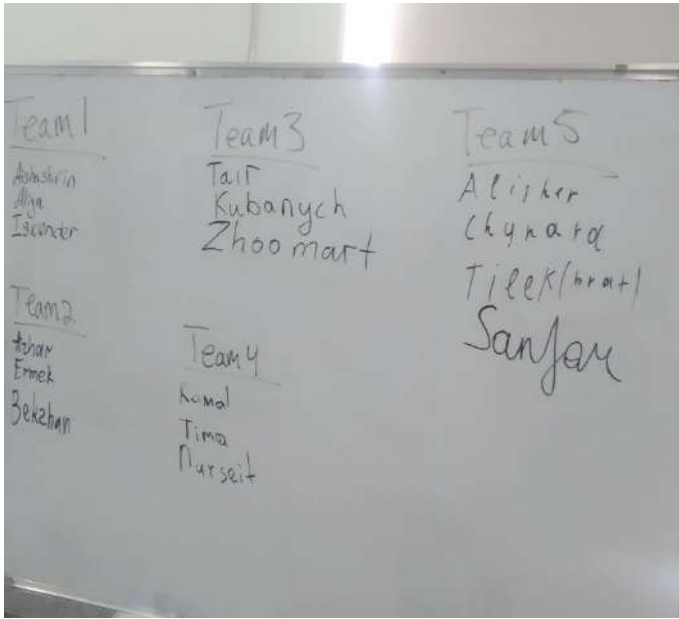 Team1
Alya
Iskender
Team2
Azhar
Ermek
Bekzhan
Team3
Tair
Kubanych
Zhoomart
Team4
Komal
Tima
Nurseit
Team5
Alisher
Chynara
Tilek(brat)
Sanjar